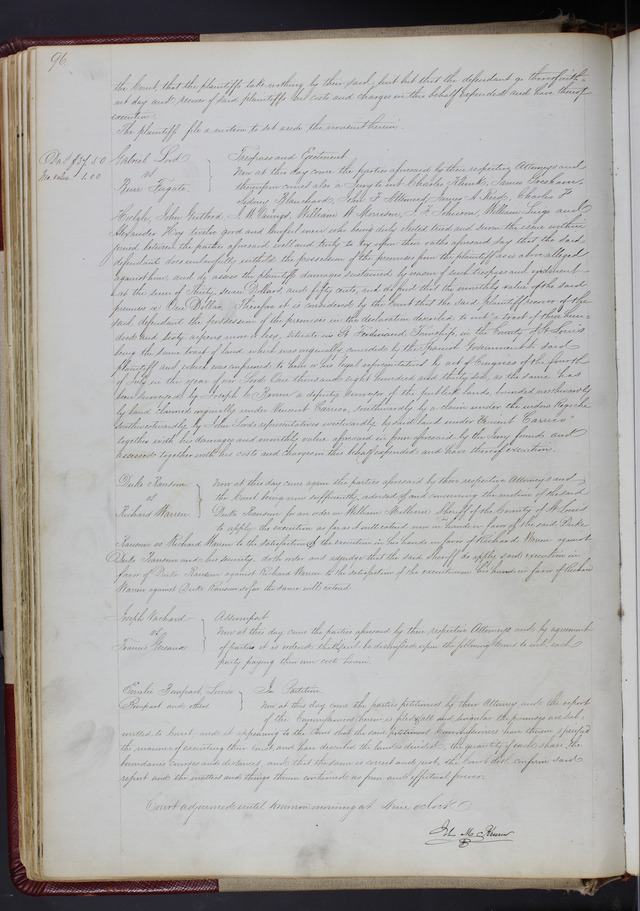 96
the Court, that the plaintiffs take nothing by their said suit but that the defendant go thereof without day and recover of said plaintiffs his costs and charges in this behalf expended and have thereof
execution.
The plaintiff files a motion to set aside the nonsuit herein.
Dam $37.50 Gabriel Lord Trespass and Ejectment
Mo. value 1.00 vs Now at this day come the parties aforesaid by their respective Attorneys and
thereupon comes also a Jury to wit Charles
Sidney Blanchard, John F James A Reed, Charles F
John William W Morrison, J F Johnson, William and
Alexander twelve good and lawful men who being duly elected tried and sworn the issue within
joined between the parties aforesaid well and truly to try upon their oaths aforesaid say that the said
defendant does unlawfully withhold the possession of the premises from the plaintiff as is above alleged
against him and do assess the plaintiff damages sustained by reason of such trespass and ejectment
at the sum of Thirty seven Dollars and fifty cents, and do find that the monthly value of the said
premises is One Dollar. Therefore it is considered by the Court that the said plaintiff recover of the
said defendant the possession of the premises in the declaration described to wit "a tract of three hun-
dred and sixty arpens more or less, situate in St Ferdinand Township in the County of St Louis
being the same tract of land which was originally conceded by the Spanish Government to said
plaintiff and which was confirmed to him or his legal representatives by act of Congress of the fourth
of July in the year of our Lord One thousand eight hundred and thirty six, as the same has
been surveyed by Joseph C Brown a deputy surveyor of the public lands, bounded northwardly
by land claimed originally under Vincent Carrico, southwardly by a claim under the widow
southwestwardly by John Lord's representatives westwardly by land under Vincent Carrico"
together with his damages and monthly value aforesaid in form aforesaid by the Jury found and
assessed together with his costs and charges in this behalf expended and have thereof execution.
Duke Ransom Now at this day come again the parties aforesaid by their respective Attorneys and
vs the Court being now sufficiently advised of and concerning the motion of the said
Richard Warren Duke Ransom for an order on William Milburn Sheriff of the County of St Louis
to apply the execution as far as it will extend now in his hands in favor of the said Duke
Ransom vs Richard Warren to the satisfaction of the execution in his hands in favor of Richard Warren against
Duke Ransom and his security, doth order and adjudge that the said Sheriff do apply said execution in
favor of Duke Ransom against Richard Warren to the satisfaction of the execution in his hands in favor of Richard
Warren against Duke Ransom so far the same will extend
Joseph Vachard Assumpsit
vs Now at this day come the parties aforesaid by their respective Attorneys and by agreement
of parties it is ordered that this suit be dismissed upon the following terms to wit, each
party paying their own costs herein.
Louise In Partition
and others Now at this day come the parties petitioners by their Attorney and the report
of the Commissioners herein is filed & all and singular the premises are sub-
mitted to Court, and it appearing to the Court that the said Commissioners have therein specified
the manner of executing their trust, and have described the lands divided, the quantity of each share, the
boundaries courses and distances, and that the same is correct and just, the Court doth confirm said
report and the matters and things therein contained as firm and effectual forever.
Court adjourned until tomorrow morning at Nine o'clock